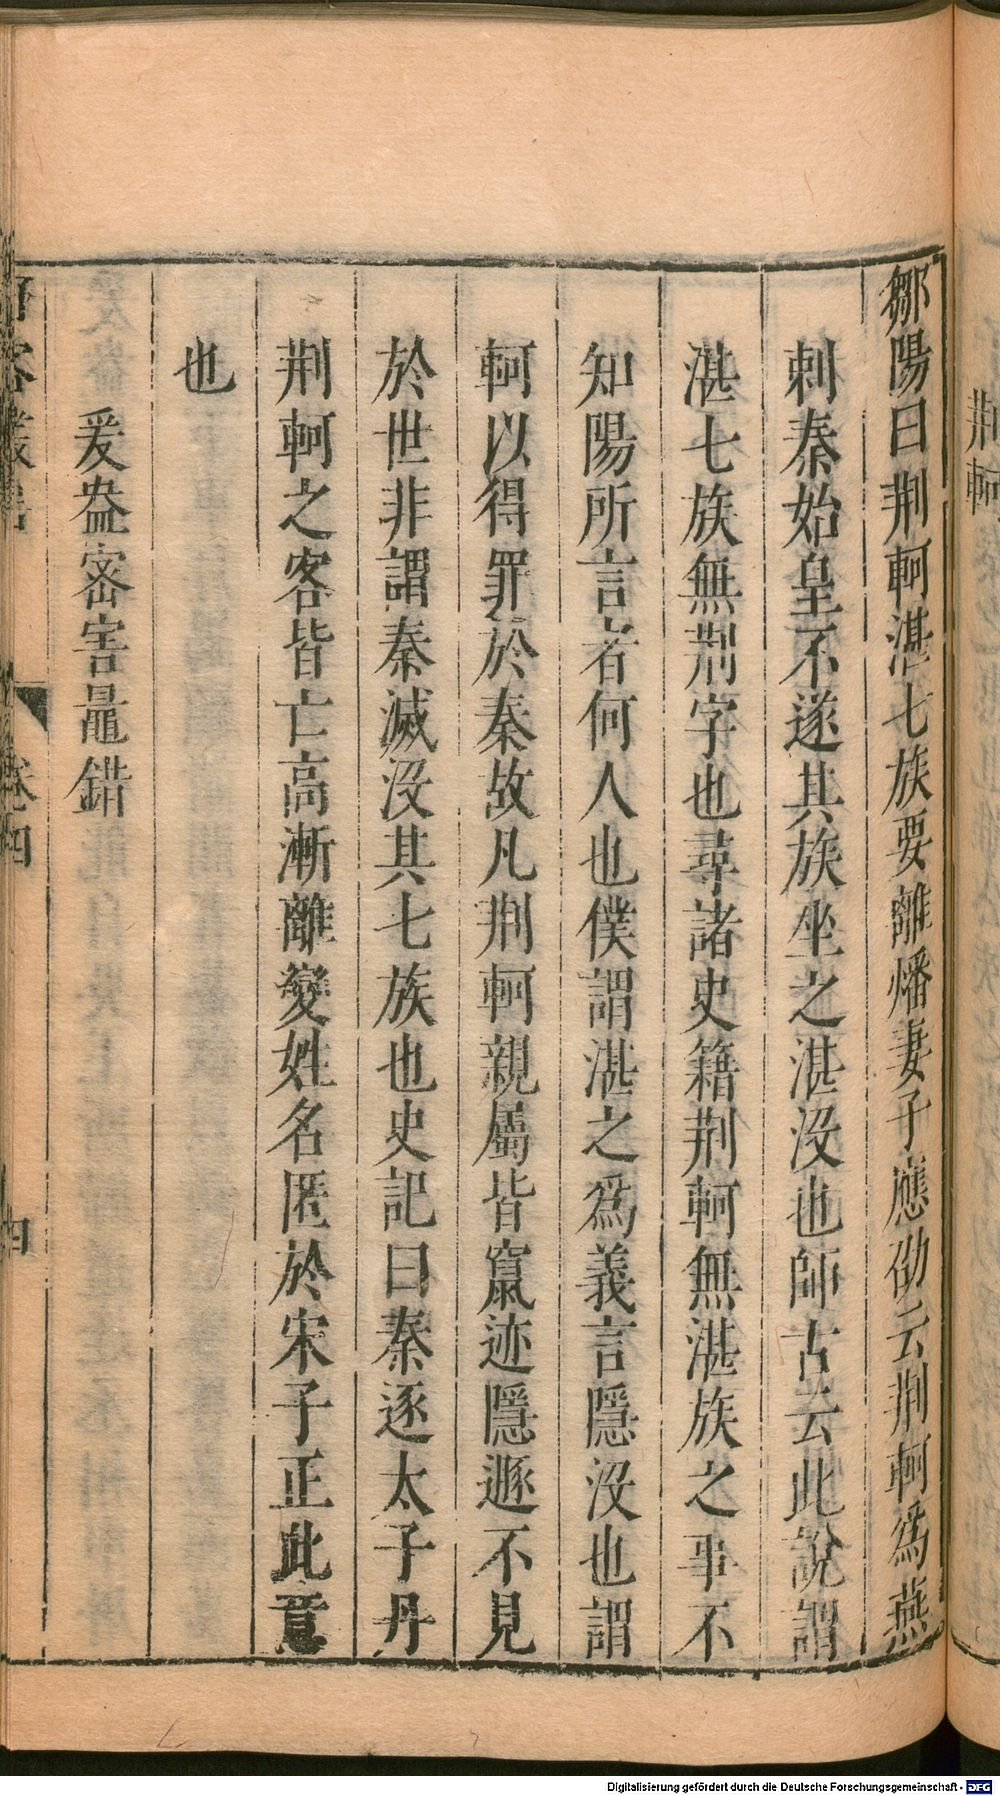 荆軻
鄒陽曰荆軻湛七族要離燔妻子應劭云荆軻爲燕
刺秦始皇不遂其族坐之湛没也師古云此說謂
湛七族無荆字也尋諸史籍荆軻無湛族之事不
知陽所言者何人也僕謂湛之爲義言隱没也謂
軻以得罪於秦故凡荆軻親屬皆竄迹隱遯不見
於世非謂秦滅没其七族也史記曰秦逐太子丹
荆軻之客皆亡高漸離變姓名匿於宋子正此意
也
爰盎宻害鼂錯
卷四
四
Digitalisierung gefördert durch die Deutsche Forschungsgemeinschaft - DFG